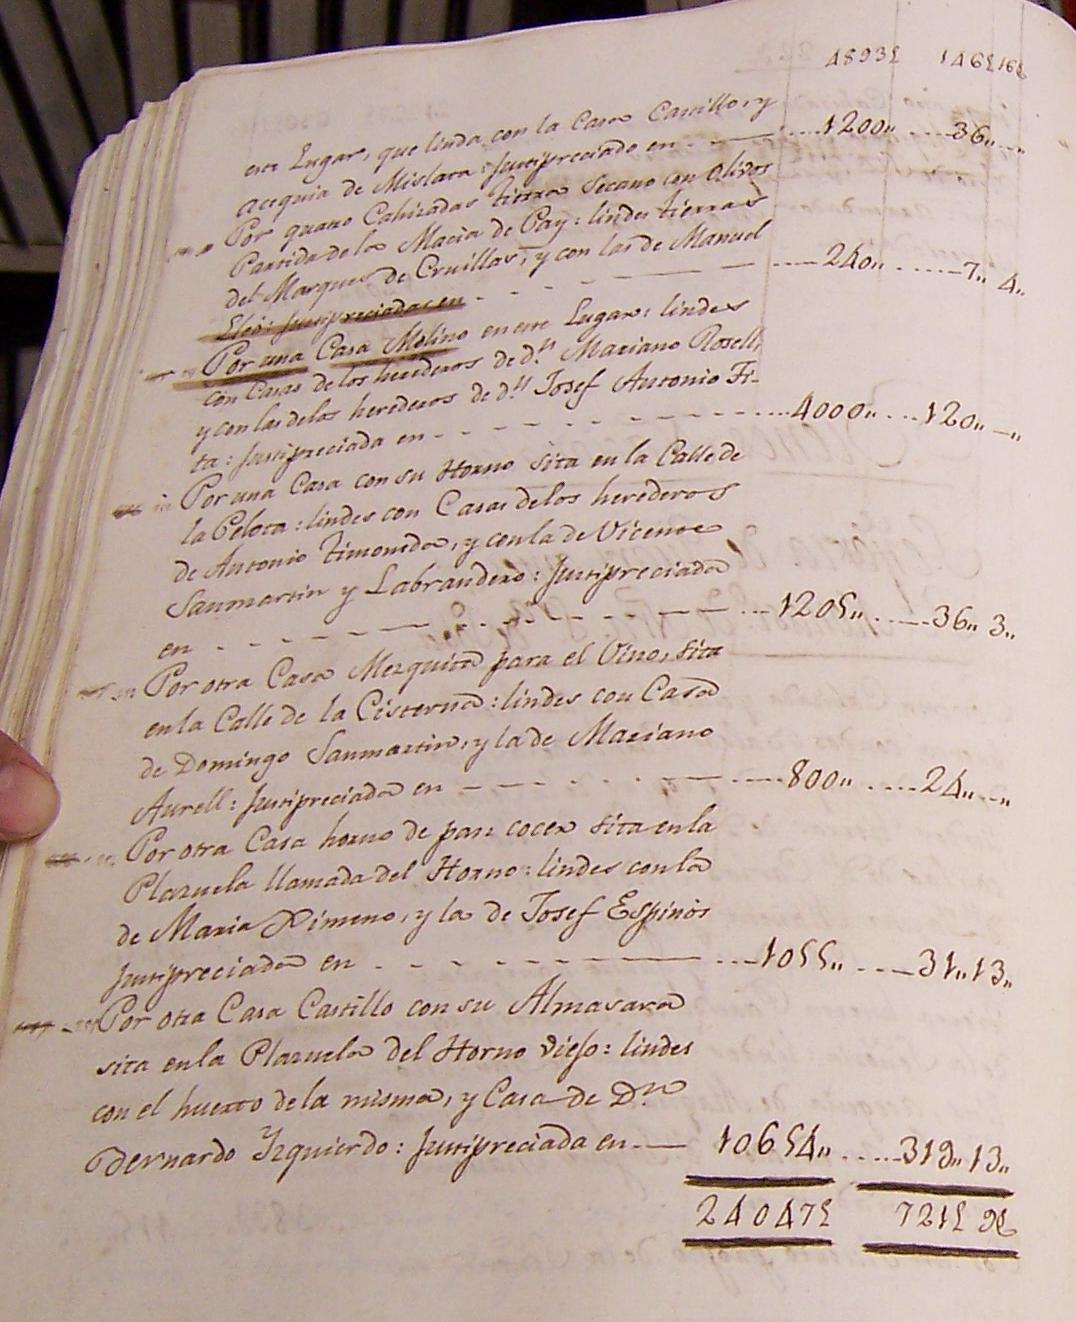 4893£ 146£16£
este Lugar, que linda con la Casa Castillo, y
acequia de Mislata: Justipreciado en - - 1200,, 36,, -,,
Por quatro Cahizadas tierra Secano con Olivos
Partida de la Macia de Pay: lindes tierras
del Marques de Cruillas, y con las de Manuel
Justipreciadas en - - - 240,, 7,, 4,,
Por una Casa Molino en este Lugar: lindes
con Casas de los herederos de dn Mariano Rosell,
y con las de los herederos de dn Josef Antonio Fi-
ta: Justipreciada en - - - 4000,, 120,, -,,
Por una Casa con su Horno sita en la Calle de
la Pelota: lindes con Casas de los herederos
de Antonio Timoneda, y con la de Vicente
Sanmartin y Labrandero: Justipreciada
en - - - 1205,, 36,, 3,,
Por otra Casa Mezquita para el Vino, sita
en la Calle de la Cisterna: lindes con Casa
de Domingo Sanmartin, y la de Mariano
Aurell: Justipreciada en - - - 800,, 24,, -,,
Por otra Casa horno de pan cocer sita en la
Plazuela llamada del Horno: lindes con la
de Maria Ximeno, y la de Josef Espinós
Justipreciada en - - - 1055,, 31,, 13,,
Por otra Casa Castillo con su Almasara
sita en la Plazuela del Horno Viejo: lindes
con el huerto de la misma, y Casa de Dn
Bernardo Yzquierdo: Justipreciada en - 10654,, 319,, 13,,
24047£ 721£ 9£